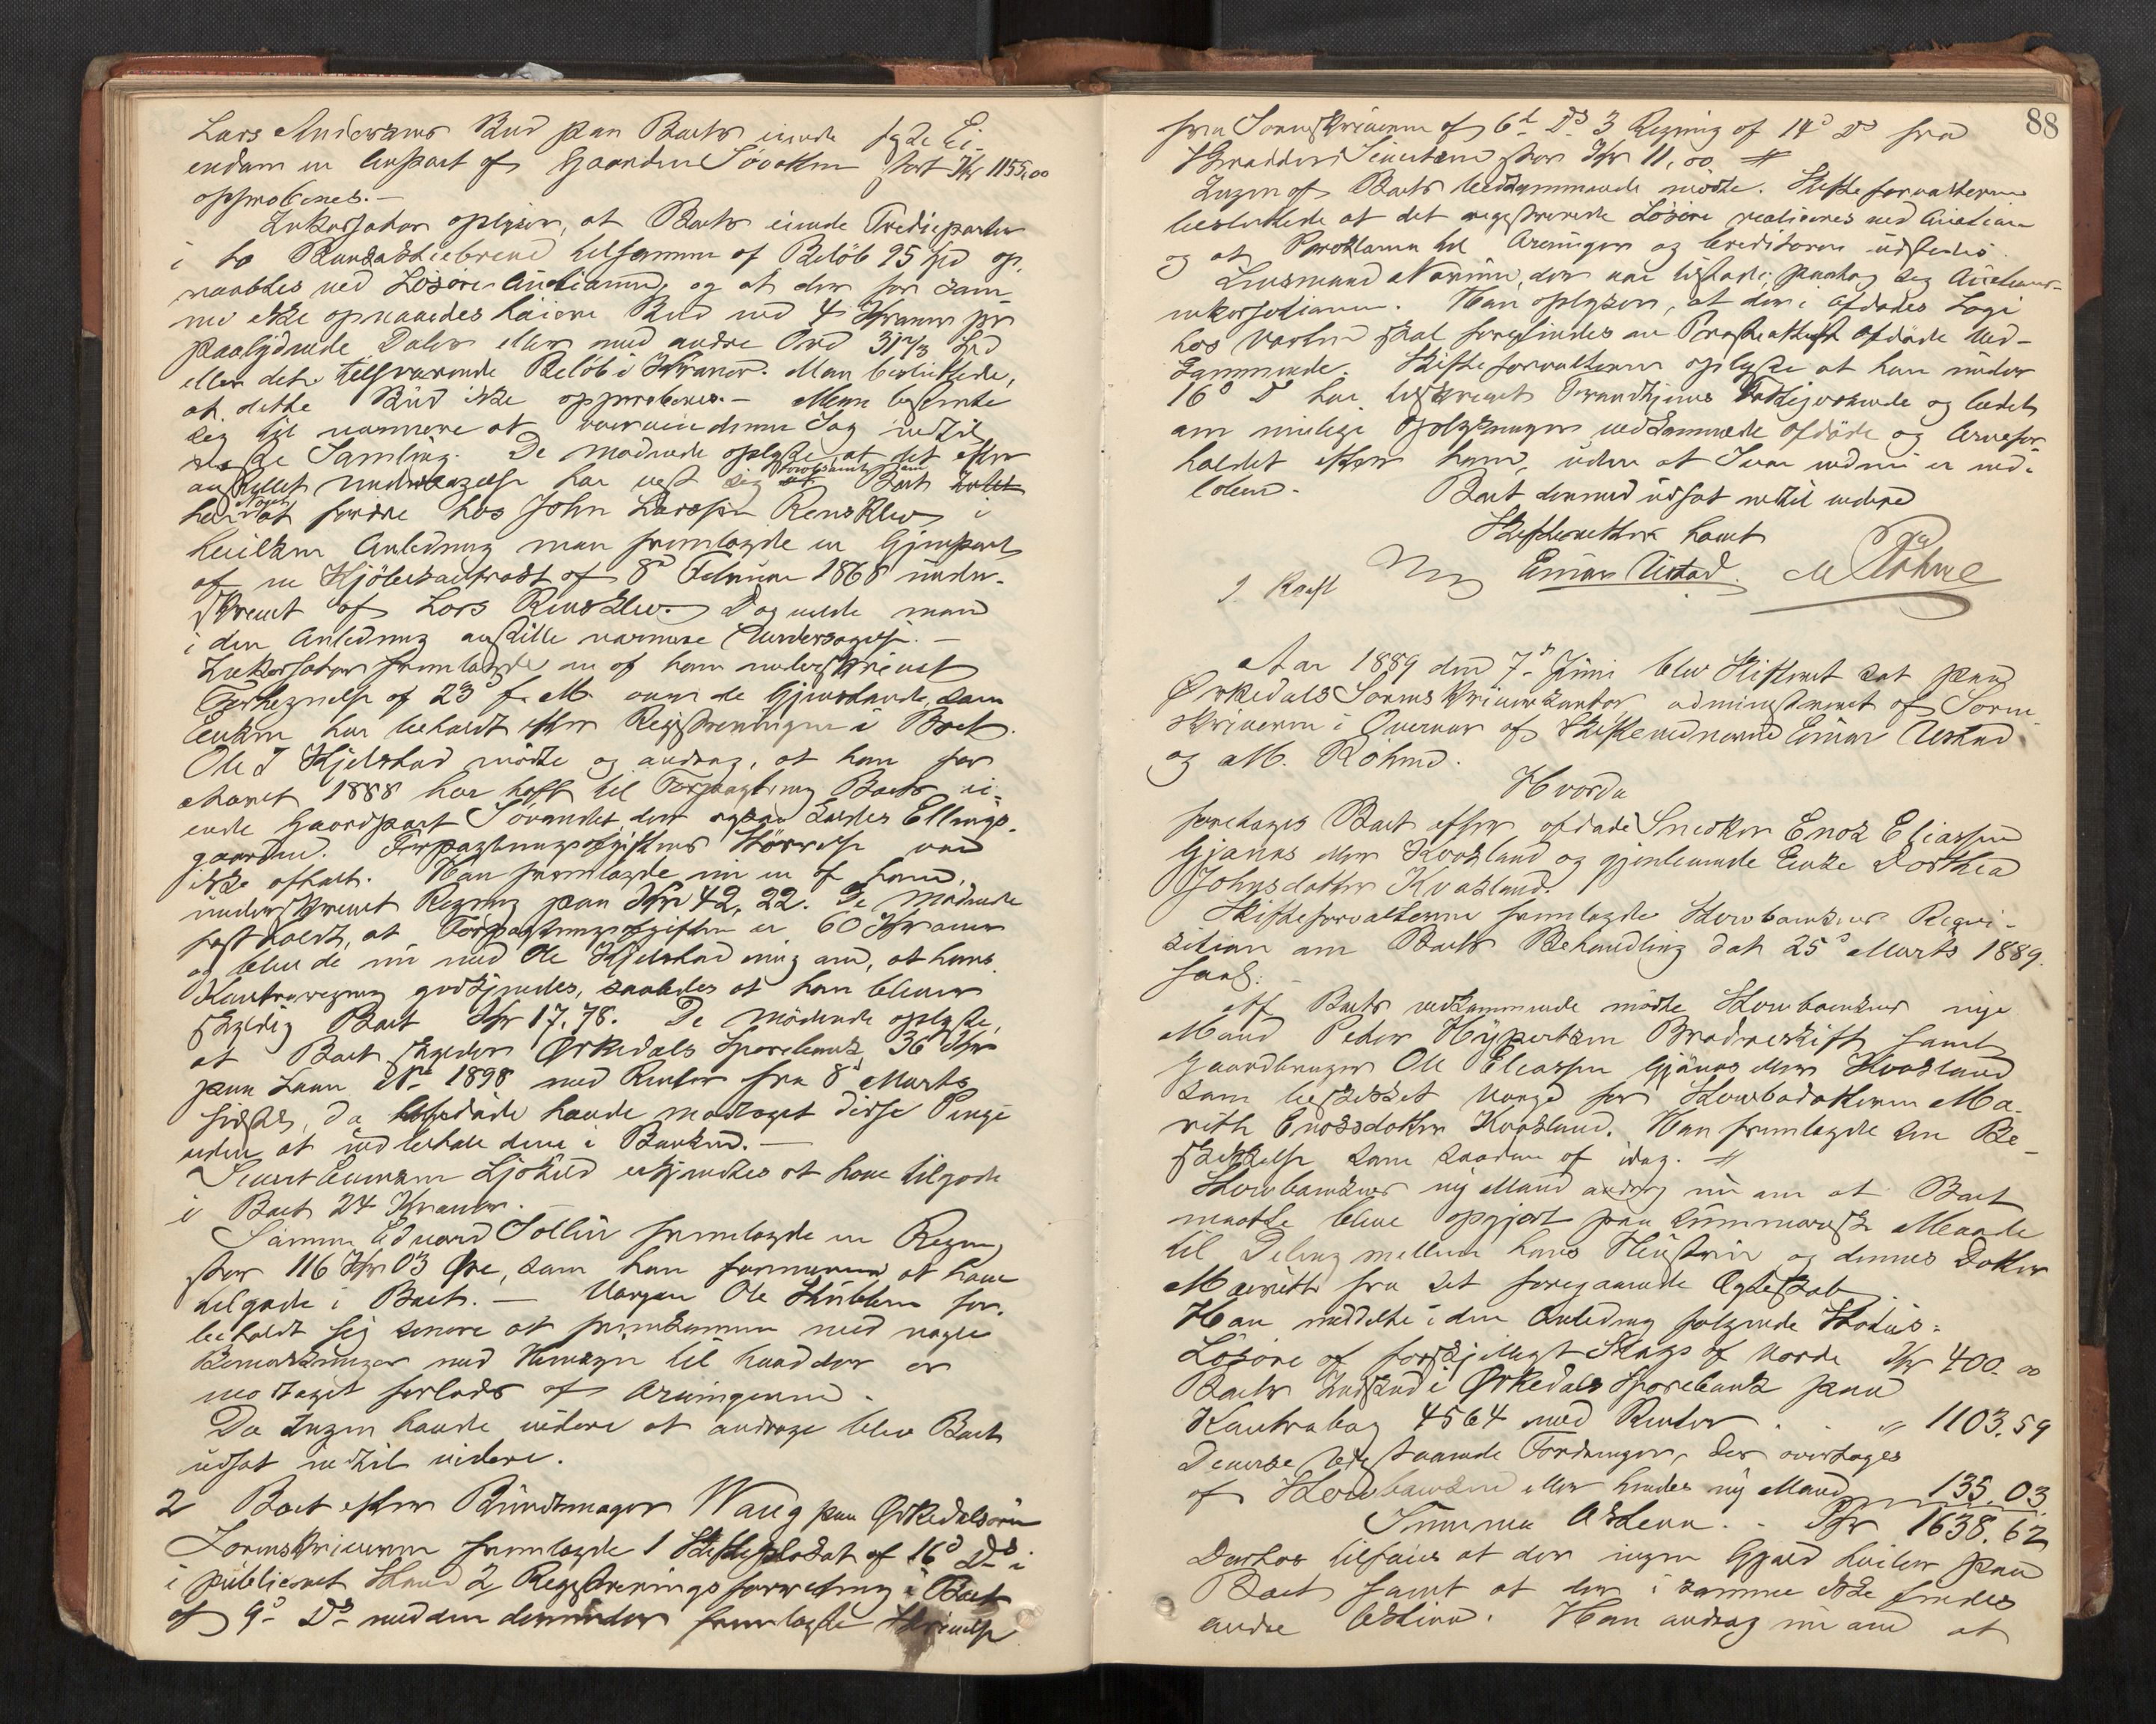 Lars Andersens Bud paa Boets eiende faste Ei-
endom en Anpart af Gaarden stort Kr 1155,00
approberes.-
Inkassator oplyser, at Boets eiende Trediepart
i to Bankaktiebreve tilsammen af Beløb 95 Spd op-
raabtes ved Løsøre-Auctionen, og at der for sam-
me ikke opnaaedes høiere Bud end 4 Kroner pr
paalydende Daler eller med andre Ord 31 2/3 Spd
eller det tilsvarende Beløb i Kroner. Man besluttede,
at dette Bud ikke approberes.- Man bestemte
sig til nærmere at denne Sag indtil
næste Samling. De mødende oplyste, at det efter
anstillet Undersøgelse har vist sig at Boet
har Noget at fordre hos John Larssen Rensklev i
hvilken Anledning man fremlagde en Gjenpart
af en Kjøbekontrakt af 8de Februar 1868 under-
skrevet af Lars Rensklev. Dog vilde man
i den Anledning anstille nærmere Undersøgelse.-
Inkassator fremlagde en af ham underskrevet
Fortegnelse af 23de f. M. over de Gjenstande, som
Enken har beholdt efter Registreringen i Boet.
Ole J Kjelstad mødte og androg, at han for
Aaret 1888 har havt til Forpagtning Boets ei-
ende Gaardpart der ogsaa kaldes Ellings-
gaarden. Forpagtningsafgiftens Størrelse var
ikke aftalt. Han fremlagde nu en af ham
underskrevet Regning paa Kr 42,22. De Mødende
fastholdt, at Forpagtningsafgiften er 60 Kroner
og bleve de nu med Ole Kjelstad enig om, at hans
Kontraregning godkjendes, saaledes at han bliver
skyldig Boet Kr 17.78. De mødende oplyste,
at Boet skylder Ørkedals Sparebank 36 Kr
paa Laan No 1898 med Renter fra 8de Marts
sidstl, da Afdøde havde modtaget disse Penge
uden at indbetale dem i Banken.-
Sivert Ljøkel erkjendtes at have tilgode
i Boet 24 Kroner.-
Edvard Sollie fremlagde en Regning
stor 116 Kr 03 Øre, som han formener at have
tilgode i Boet.- Vergen Ole for-
beholdt sig senere at fremkomme med nogle
Bemærkninger med Hensyn til hvad der er
modtaget forlods af Arvingerne.
Da Ingen havde videre at andrage blev Boet
udsat indtil videre.
2 Boet efter Bundtmager Waug paa Ørkedalsøren
Sorenskriveren fremlagde 1 Skifteplakat af 16de Ds i
i publiceret Stand 2 Registreringsforretning i Boet
af 9de Ds med den derunder fremlagte Skrivelse
88
fra Sorenskriveren af 6te Ds 3 Regning af 14de Ds fra
Sivertsen stor Kr 11,00 #
Ingen af Boets vedkommende mødte. Skifteforvalteren
besluttede at det registrerede Løsøre realiseres ved Auction
og at Proklama til Arvinger og Creditorer udstedes.
Lensmand der var tilstede, paatog sig Auctions-
inkassationen. Han oplyser, at der i Afdødes Logi
hos skal forefindes en Præsteattest Afdøde ved-
kommende. Skifteforvalteren oplyste at han under
16de Ds har tilskrevet Trondhjems Skifteret og bedet
om mulige Oplysninger vedkommende Afdøde og Arvefor-
holdet efter ham, uden at Svar endnu er ind-
løbet. Boet dermed udsat indtil videre
Skifteretten hævet
Einar Ustad. M Røhme

Aar 1889 den 7de Juni blev Skifteret sat paa
Ørkedals Sorenskriverkontor administreret af Soren-
skriveren i Overvær af Skiftevidnerne Einar Ustad
og M. Røhme.
Hvorda
foretages Boet efter afdøde Snedker Enok Eliassen
Gjønnes eller Kvakland og gjenlevende Enke Dorthea
Johnsdatter Kvakland.
Skifteforvalteren fremlagde Stervboenkens Reqvi-
sition om Boets Behandling dat 25de Marts 1889.
saal:
Af Boets vedkommende mødte Stervboenkens nye
Mand Peder samt
Gaardbruger Ole Eliassen Gjønnes eller Kvakland
som beskikket Verge for Stervbodatteren Ma-
rith Enoksdatter Kvakland. Han fremlagde sin Be-
skikkelse som saadan af idag. #
Stervboenkens ny Mand androg nu om at Boet
maatte blive opgjort paa summarisk Maade
til Deling mellem hans Hustru og dennes Datter
Marith fra det foregaaende Ægteskab.
Han meddelte i den Anledning følgende Status:
Løsøre af forskjelligt Slags af Værdi Kr 400.00
Boets Indskud i Ørkedals Sparebank paa
Kontrabog 4564 med Renter . . " 1103.59
Diverse udestaaende Fordringer, der overtages
af Stervboenken eller hendes ny Mand 135.03
Summa Activa . . Kr 1638.62
Derhos tilføies at der ingen Gjæld hviler paa
Boet samt at der i samme ikke findes
andre Activa. Han androg nu om at